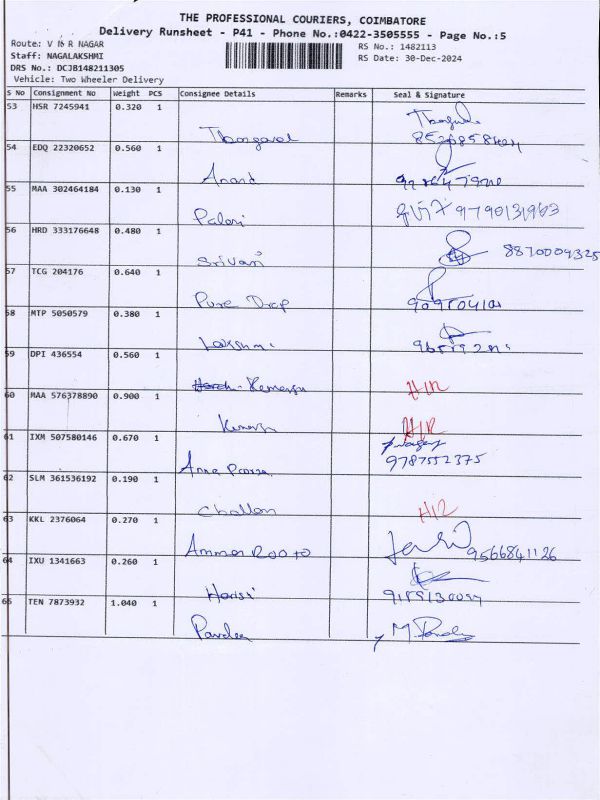 THE PROFESSIONAL COURIERS, COIMBATORE
Delivery Runsheet - P41 - Phone No.:0422-3505555 - Page No.:5
Route: V N R NAGAR
Staff: NAGALAKSHMI
DRS No.: DCJB148211305
Vehicle: Two Wheeler Delivery
RS No.: 1482113
RS Date: 30-Dec-2024
S No Consignment No Weight PCS Consignee Details Remarks Seal & Signature
53 HSR 7245941 0.320 1
54 EDQ 22320652 0.560 1
Anand
55 MAA 302464184 0.130 1
Palani 9790131963
56 HRD 333176648 0.480 1
Srivani 8870009325
57 TCG 204176 0.640 1
Pure Drop
58 MTP 5050579 0.380 1
Lakshmi
59 DPI 436554 0.560 1
60 MAA 576378890 0.900 1
61 IXM 507580146 0.670 1
9787552375
62 SLM 361536192 0.190 1
Challan
63 KKL 2376064 0.270 1
9566841126
64 IXU 1341663 0.260 1
65 TEN 7873932 1.040 1